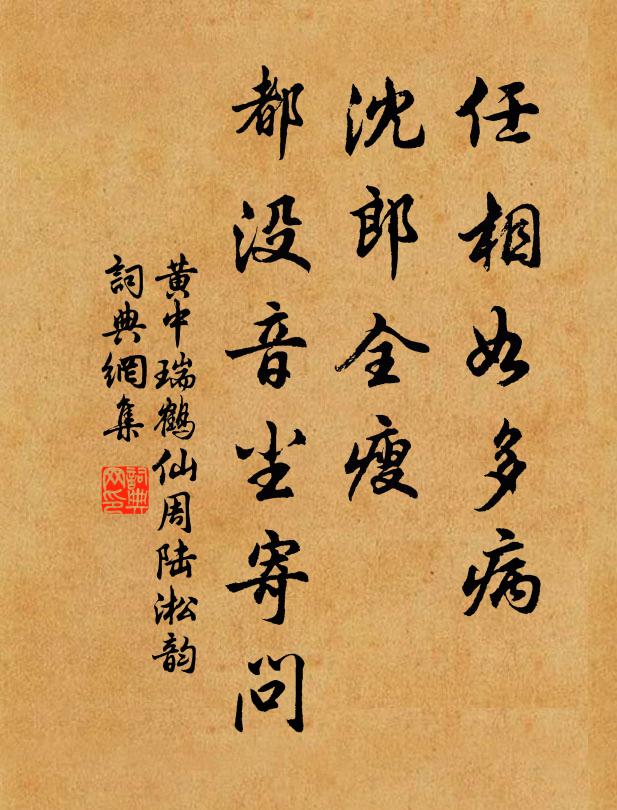 任相如多病
沈郎全瘦
都没音尘寄问
黄中瑞鹤仙周陆淞韵
詞典網集
詞典
网印